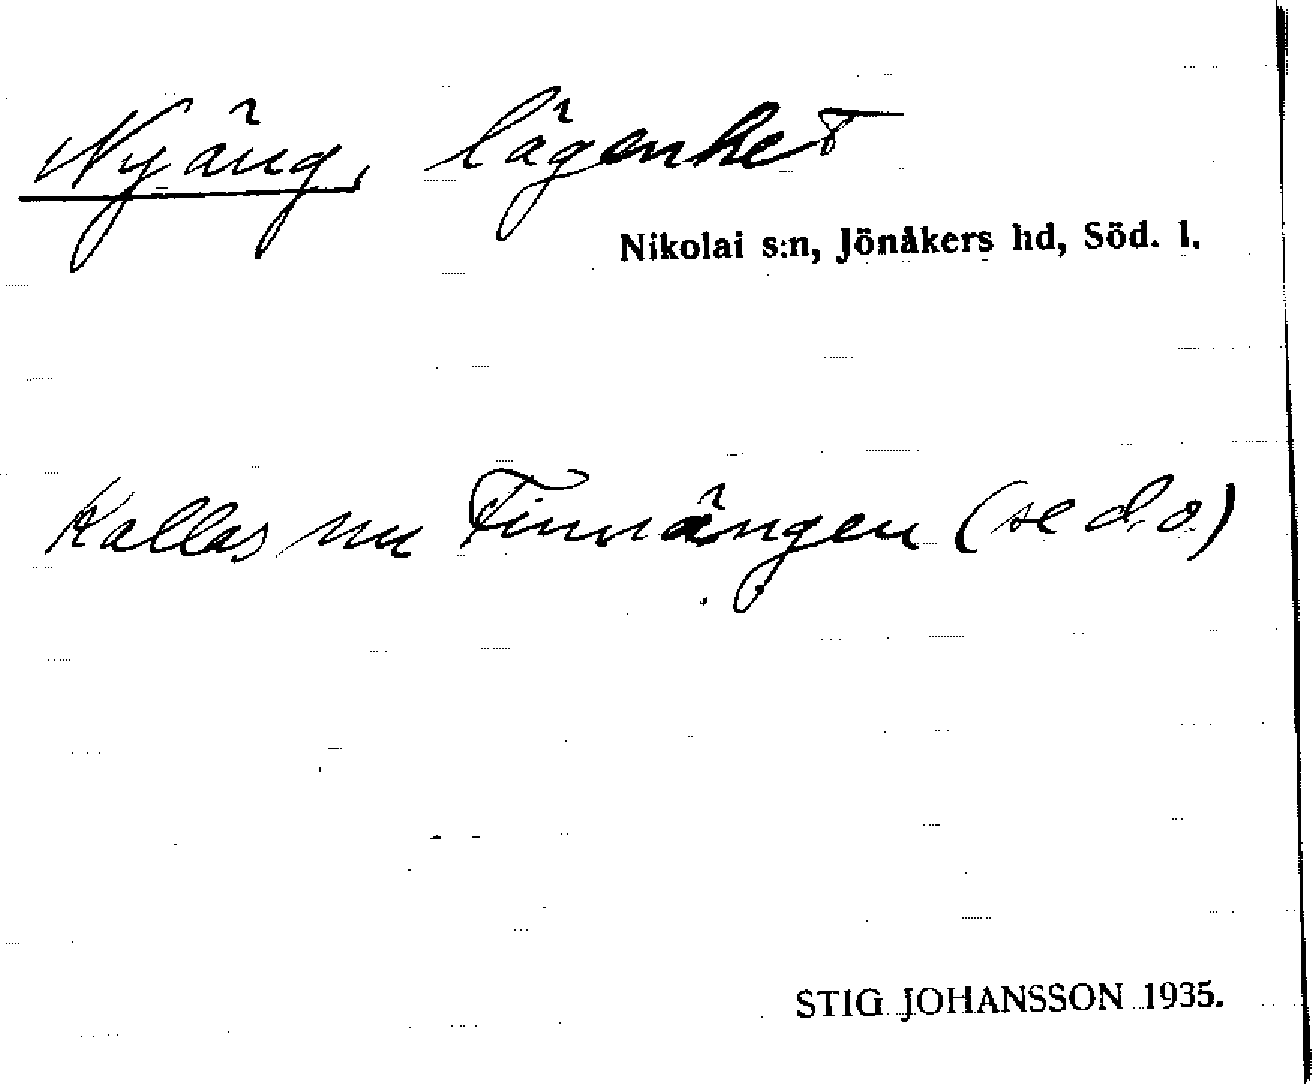 Nyäng, lägenhet
Nikolai s:n, Jönåkers hd, Söd. l.
Kallas nu Finnängen (se d.o.)
STIG JOHANSSON 1935.